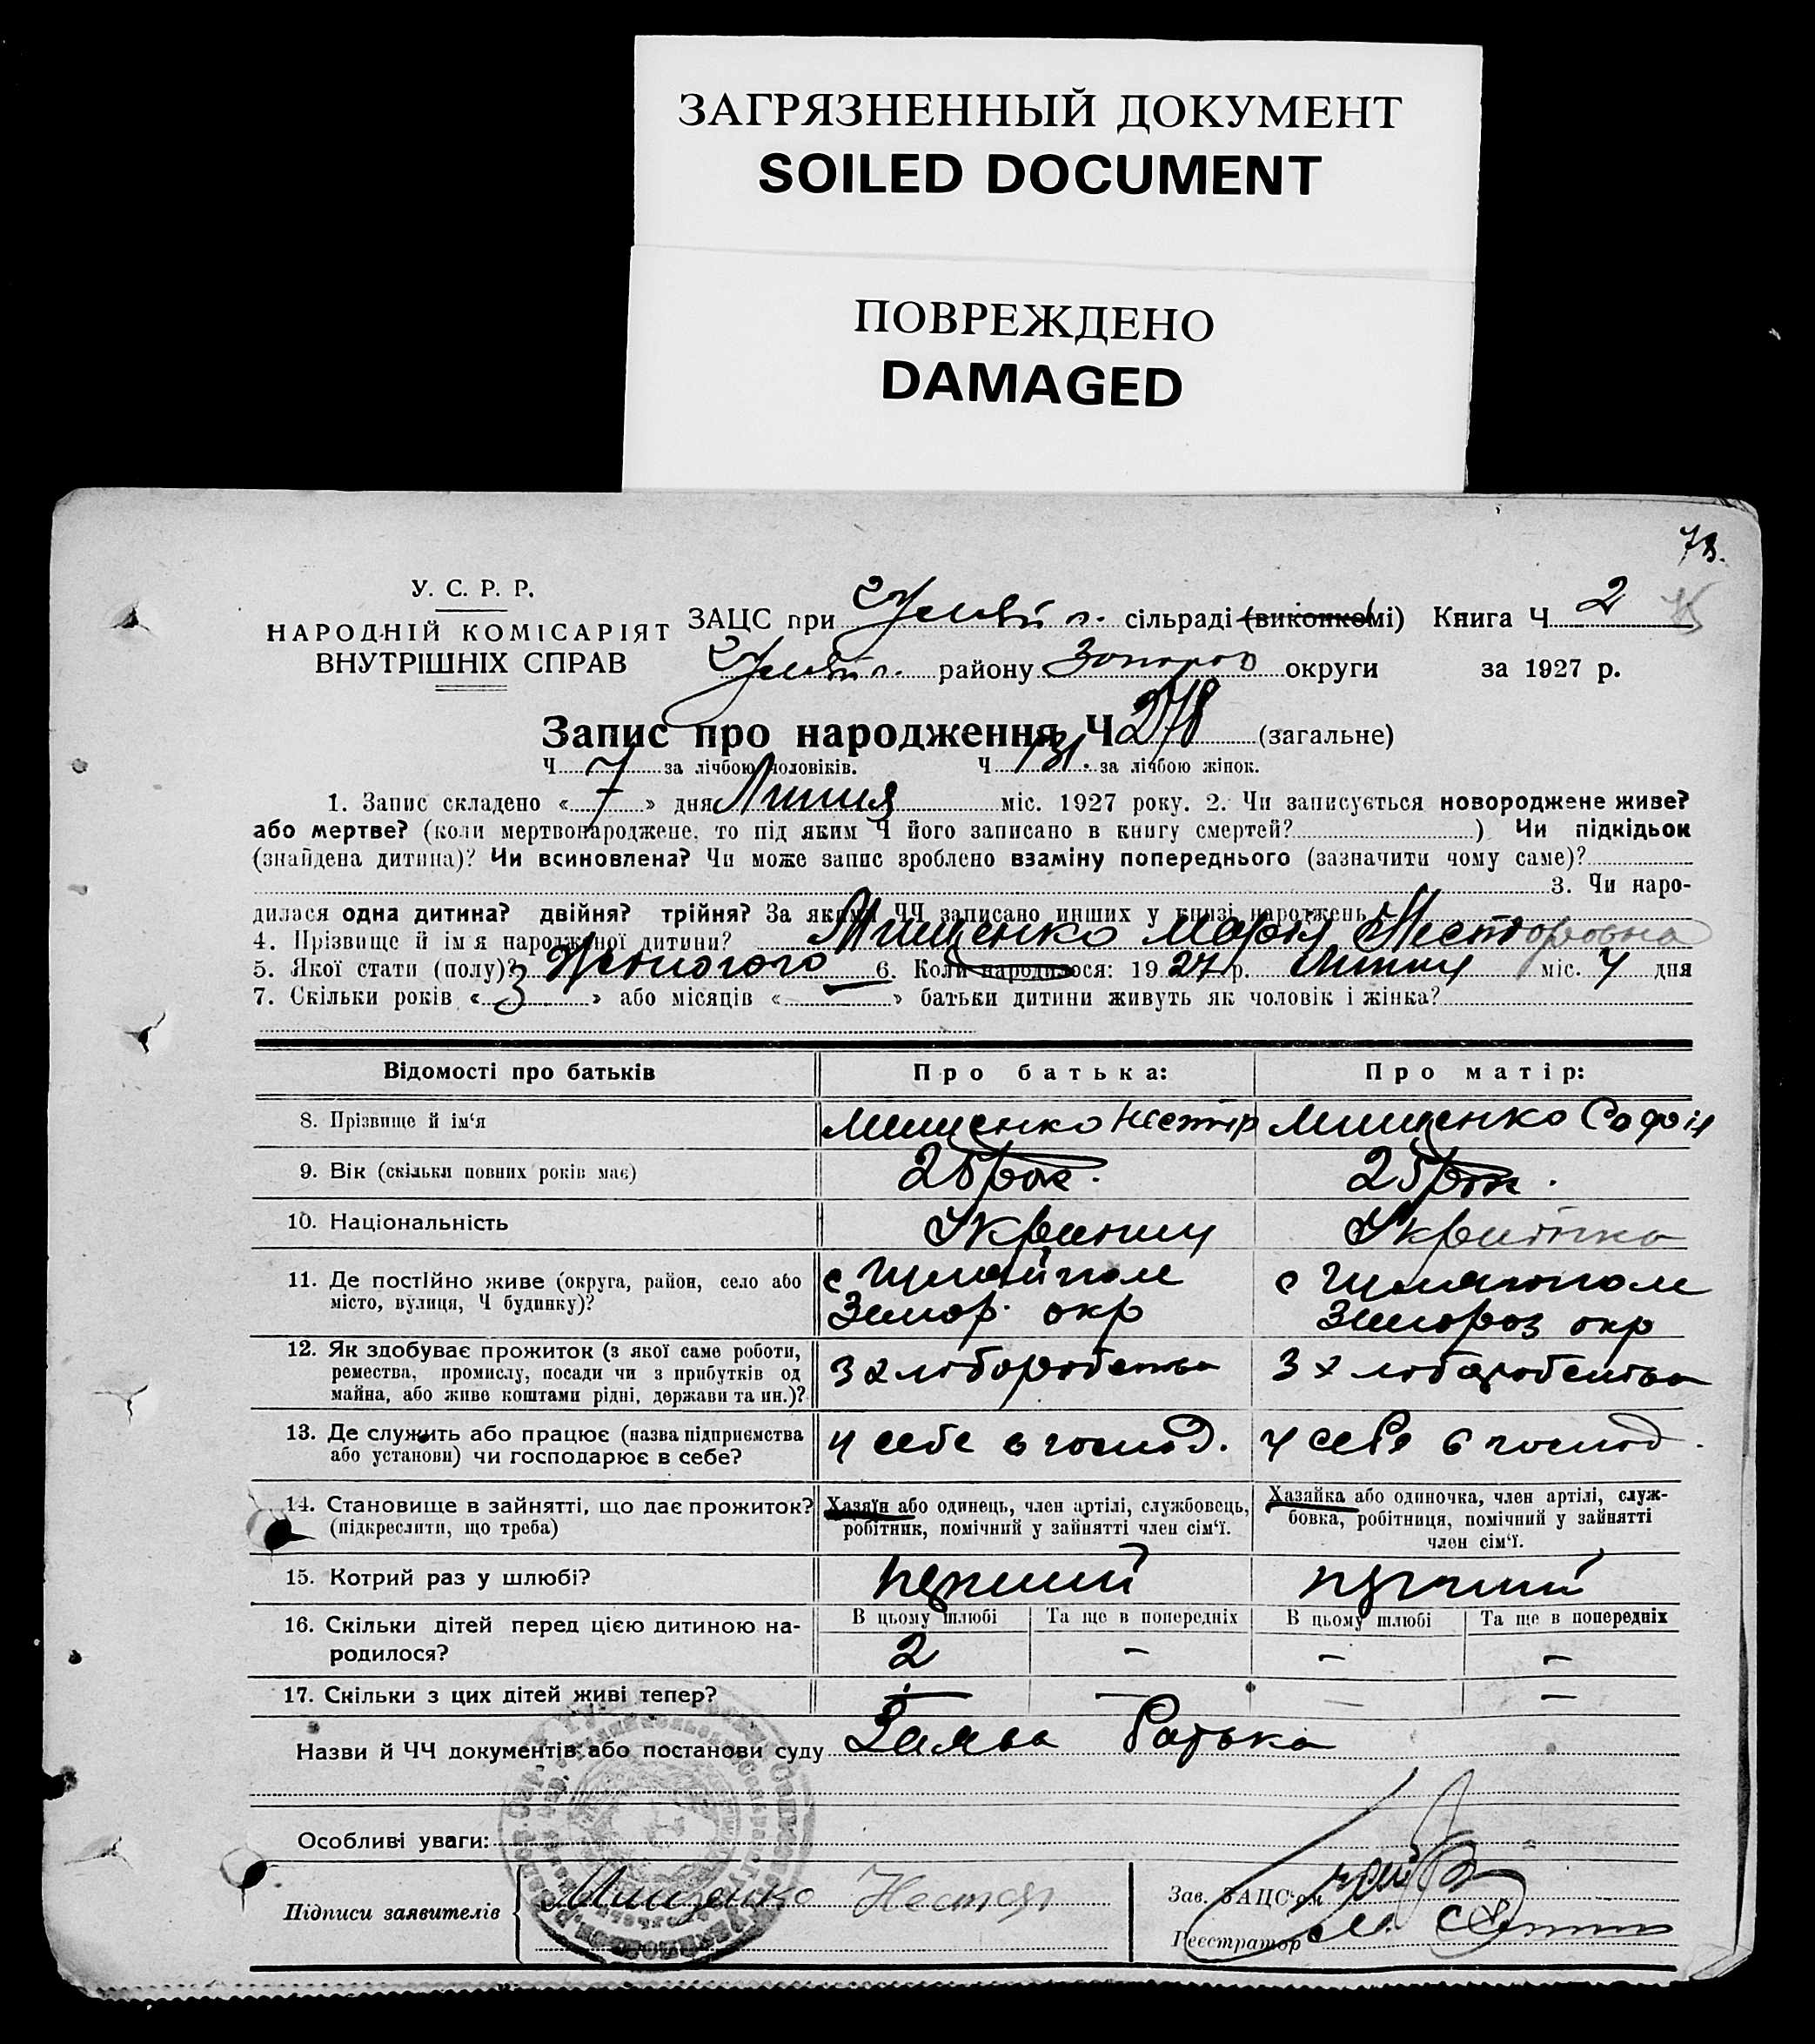 ЗАГРЯЗНЕННЫЙ ДОКУМЕНТ
SOILED DOCUMENT
ПОВРЕЖДЕНО
DAMAGED
78.
У. С. Р. Р.
НАРОДНІЙ КОМІСАРІЯТ
ВНУТРІШНІХ СПРАВ
ЗАЦС при сільраді (виконкомі) Книга Ч 2
району Запороз округи за 1927 р.
Запис про народження Ч 278 (загальне)
Ч за лічбою чоловіків. Ч 131. за лічбою жінок.
1. Запис складено « 7 » дня Липня міс. 1927 року. 2. Чи записується новороджене живе?
або мертве? (коли мертвонароджене, то під яким Ч його записано в книгу смертей? ) Чи підкідьок
(знайдена дитина)? Чи всиновлена? Чи може запис зроблено взаміну попереднього (зазначити чому саме)?
3. Чи наро-
дилася одна дитина? двійня? трійня? За якими ЧЧ записано инших у книзі народжень
4. Прізвище й ім'я народженої дитини? Мищенко Марія Несторовна
5. Якої стати (полу)? Жіночого 6. Коли народилося: 1927 р. Липня міс. 7 дня
7. Скільки років « 3 » або місяців « » батьки дитини живуть як чоловік і жінка?
Відомості про батьків Про батька: Про матір:
8. Прізвище й ім'я Мищенко Нестір Мищенко Софія
9. Вік (скільки повних років має) 25 рок. 25 рок.
10. Національність Українец Українка
11. Де постійно живе (округа, район, село або
місто, вулиця, Ч будинку)?
с Гуляйполе
Запор. окр
с Гуляйполе
Запороз окр
12. Як здобуває прожиток (з якої саме роботи,
ремества, промислу, посади чи з прибутків од
майна, або живе коштами рідні, держави та ин.)?
З хлоборобства З хлоборобства
13. Де служить або працює (назва підприємства
або установи) чи господарює в себе?
У себе в господ. У себе в господ.
14. Становище в зайнятті, що дає прожиток?
(підкреслити, що треба)
Хазяїн або одинець, член артілі, службовець,
робітник, помічний у зайнятті член сім'ї.
Хазяйка або одиночка, член артілі, служ-
бовка, робітниця, помічний у зайнятті
член сім'ї.
15. Котрий раз у шлюбі? перший перший
16. Скільки дітей перед цією дитиною на-
родилося?
В цьому шлюбі Та ще в попередніх В цьому шлюбі Та ще в попередніх
2 – – –
17. Скільки з цих дітей живі тепер? – – – –
Назви й ЧЧ документів або постанови суду Заява батька
Особливі уваги:
Підписи заявителів Мищенко Нестор
Зав. ЗАЦС'ом
Реєстратор